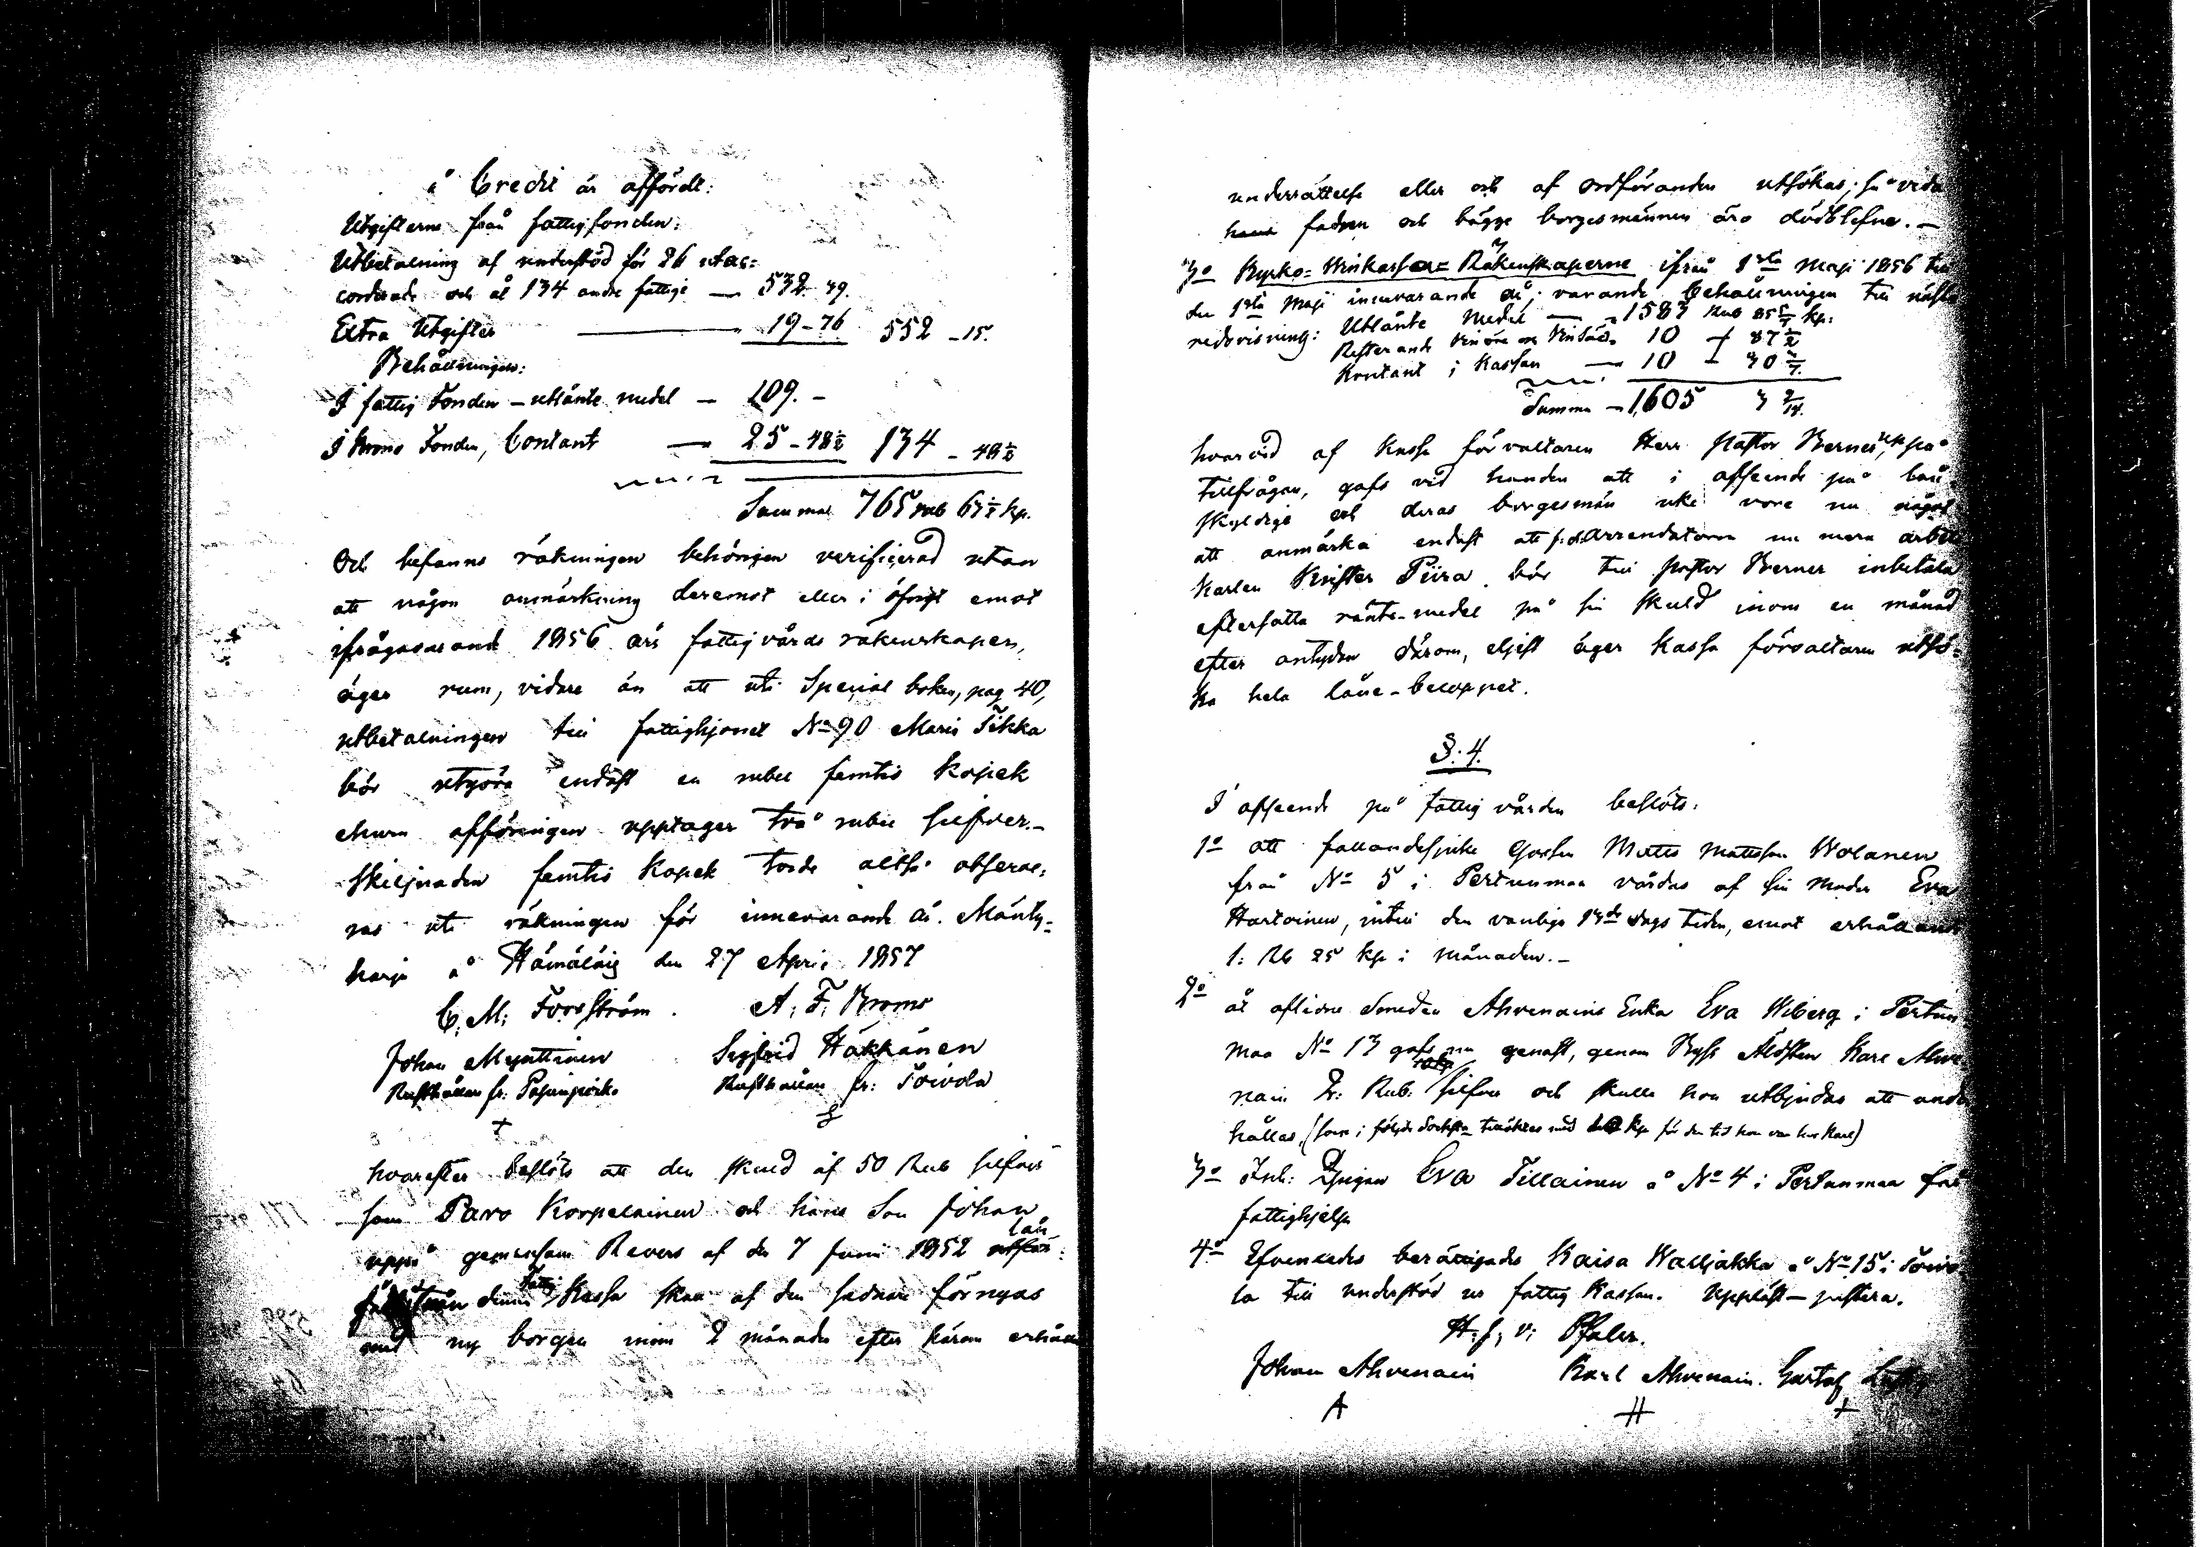 å Credit är affördt:
Utgifterne från fattigfonden:
Utbetalning af understöd för 26 utac=
corderade och åt 134 andre fattige — 532. 39.
Extra Utgifter — 19-76 552 -15.
Behållningen:
I fattig Fonden - utlånte medel - 109. -
I Broms Fonden, Contant — 25 - 48½ 134 - 48½
Summa 765 rub 63½ kp.
Och befanns räkningen behörigen verificerad utan
att någon anmärkning deremot eller i öfrigt emot
ifrågavarande 1856 års fattigvårds räkenskaper,
äger rum, vidare än att uti Special boken, pag 40,
utbetalningen till fattighjonet No 90 Maria Tikka
bör utgöra endast en rubel femtio kopek
ehuru afföringen upptager två rubel silfver.-
Skiljnaden femtio kopek torde alltså observe=
ras uti räkningen för innevarande år. Mänty=
harju å Hämäläis den 27 April 1857
C: M: Forsström. A: F: Broms
Johan Mynttinen Sigfrid Häkkänen
Rusthållare fr: Pasunperko Rusthållare fr: Toivola
+
hvarefter beslöts att den skuld af 50 Rub silfver
som Paro Korpelainen och hans Son Johan
uppå gemensam Revers af den 7 Juni 1852 lån
från denna fattig Kassa skall af den sednare förnyas
med ny borgen inom 2 månader efter härom erhållen
underrättelse eller och af ordföranden utsökas; så vida
fadren och bägge borgesmännen äro dödblefne. -
3o Kyrko= Winkassa= Räkenskaperne ifrån 1sta Maji 1856 till
den 1sta Maji innevarande år; varande behållningen till nästa
redovisning: Utlånte medel — 1583 Rub 85 kp:
Resterande 10 37½
Kontant i Kassan — 10 - 30
Summa - 1,605 3
hvarvid af Kassa förvaltaren Herr Pastor Berner, uppå
tillfrågan, gafs vid handen att i afseende på lån
skyldige och deras borgesmän icke vore nu något
att anmärka endast att f:d: Arrendatorn nu mera arbets
karlen Krister Piira bör till Pastor Berner inbetala
eftersatta ränte-medel på sin skuld inom en månad
efter antydan därom, eljest äger Kassa förvaltaren utsö=
ka hela låne-beloppet.
§. 4.
I afseende på fattig vården beslöts:
1o att fallandesjuke Gossen Matts Mattsson Wolanen
från No 5 i Pertunmaa vårdas af sin moder Eva
Hartoinen, intill den vanliga 13de dags tiden, emot erhållande
1: Rb 25 kp i månaden. -
2o åt aflidne Smeden Ahvenains Enka Eva Wiberg i Pertun
maa No 13 gafs nu genast, genom Byss Äldsten Karl Ahve
nain 2: Rub: silfver och skulle hon utbjudas att under
hållas, (som i följd för den tid hon var hos Karl)
3o Inh: Pigan Eva Tillainen å No 4 i Pertunmaa får
fattighjelp
4o Efvenledes berättigades Kaisa Walljakka å No 15 i Toivo
la till understöd ur fattig Kassan. Uppläst - justera.
H: f: v: Pfaler.
Johan Ahvenain Karl Ahvenain. Gustaf
A H +